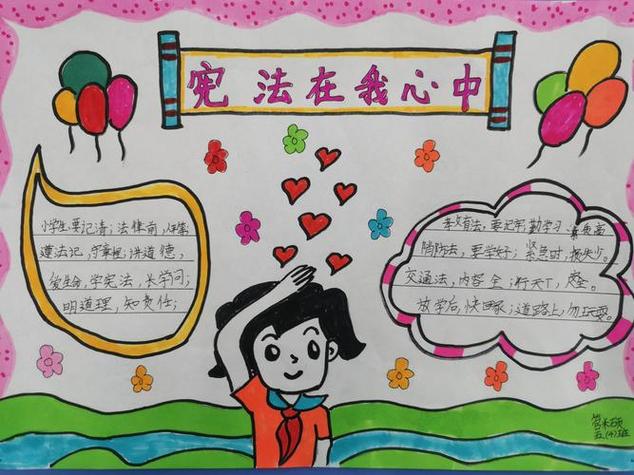 宪法在我心中
小学生,要记清;法律前,人平等
遵法记,守章程;讲道德,
爱生命,学宪法,长学问;
明道理,知责任;
教育法,要记牢;勤学习,素质高
消防法,要学好;紧急时,损失少。
交通法,内容全;行天下,定全。
放学后,快回家;道路上,勿玩耍。
五(4)班